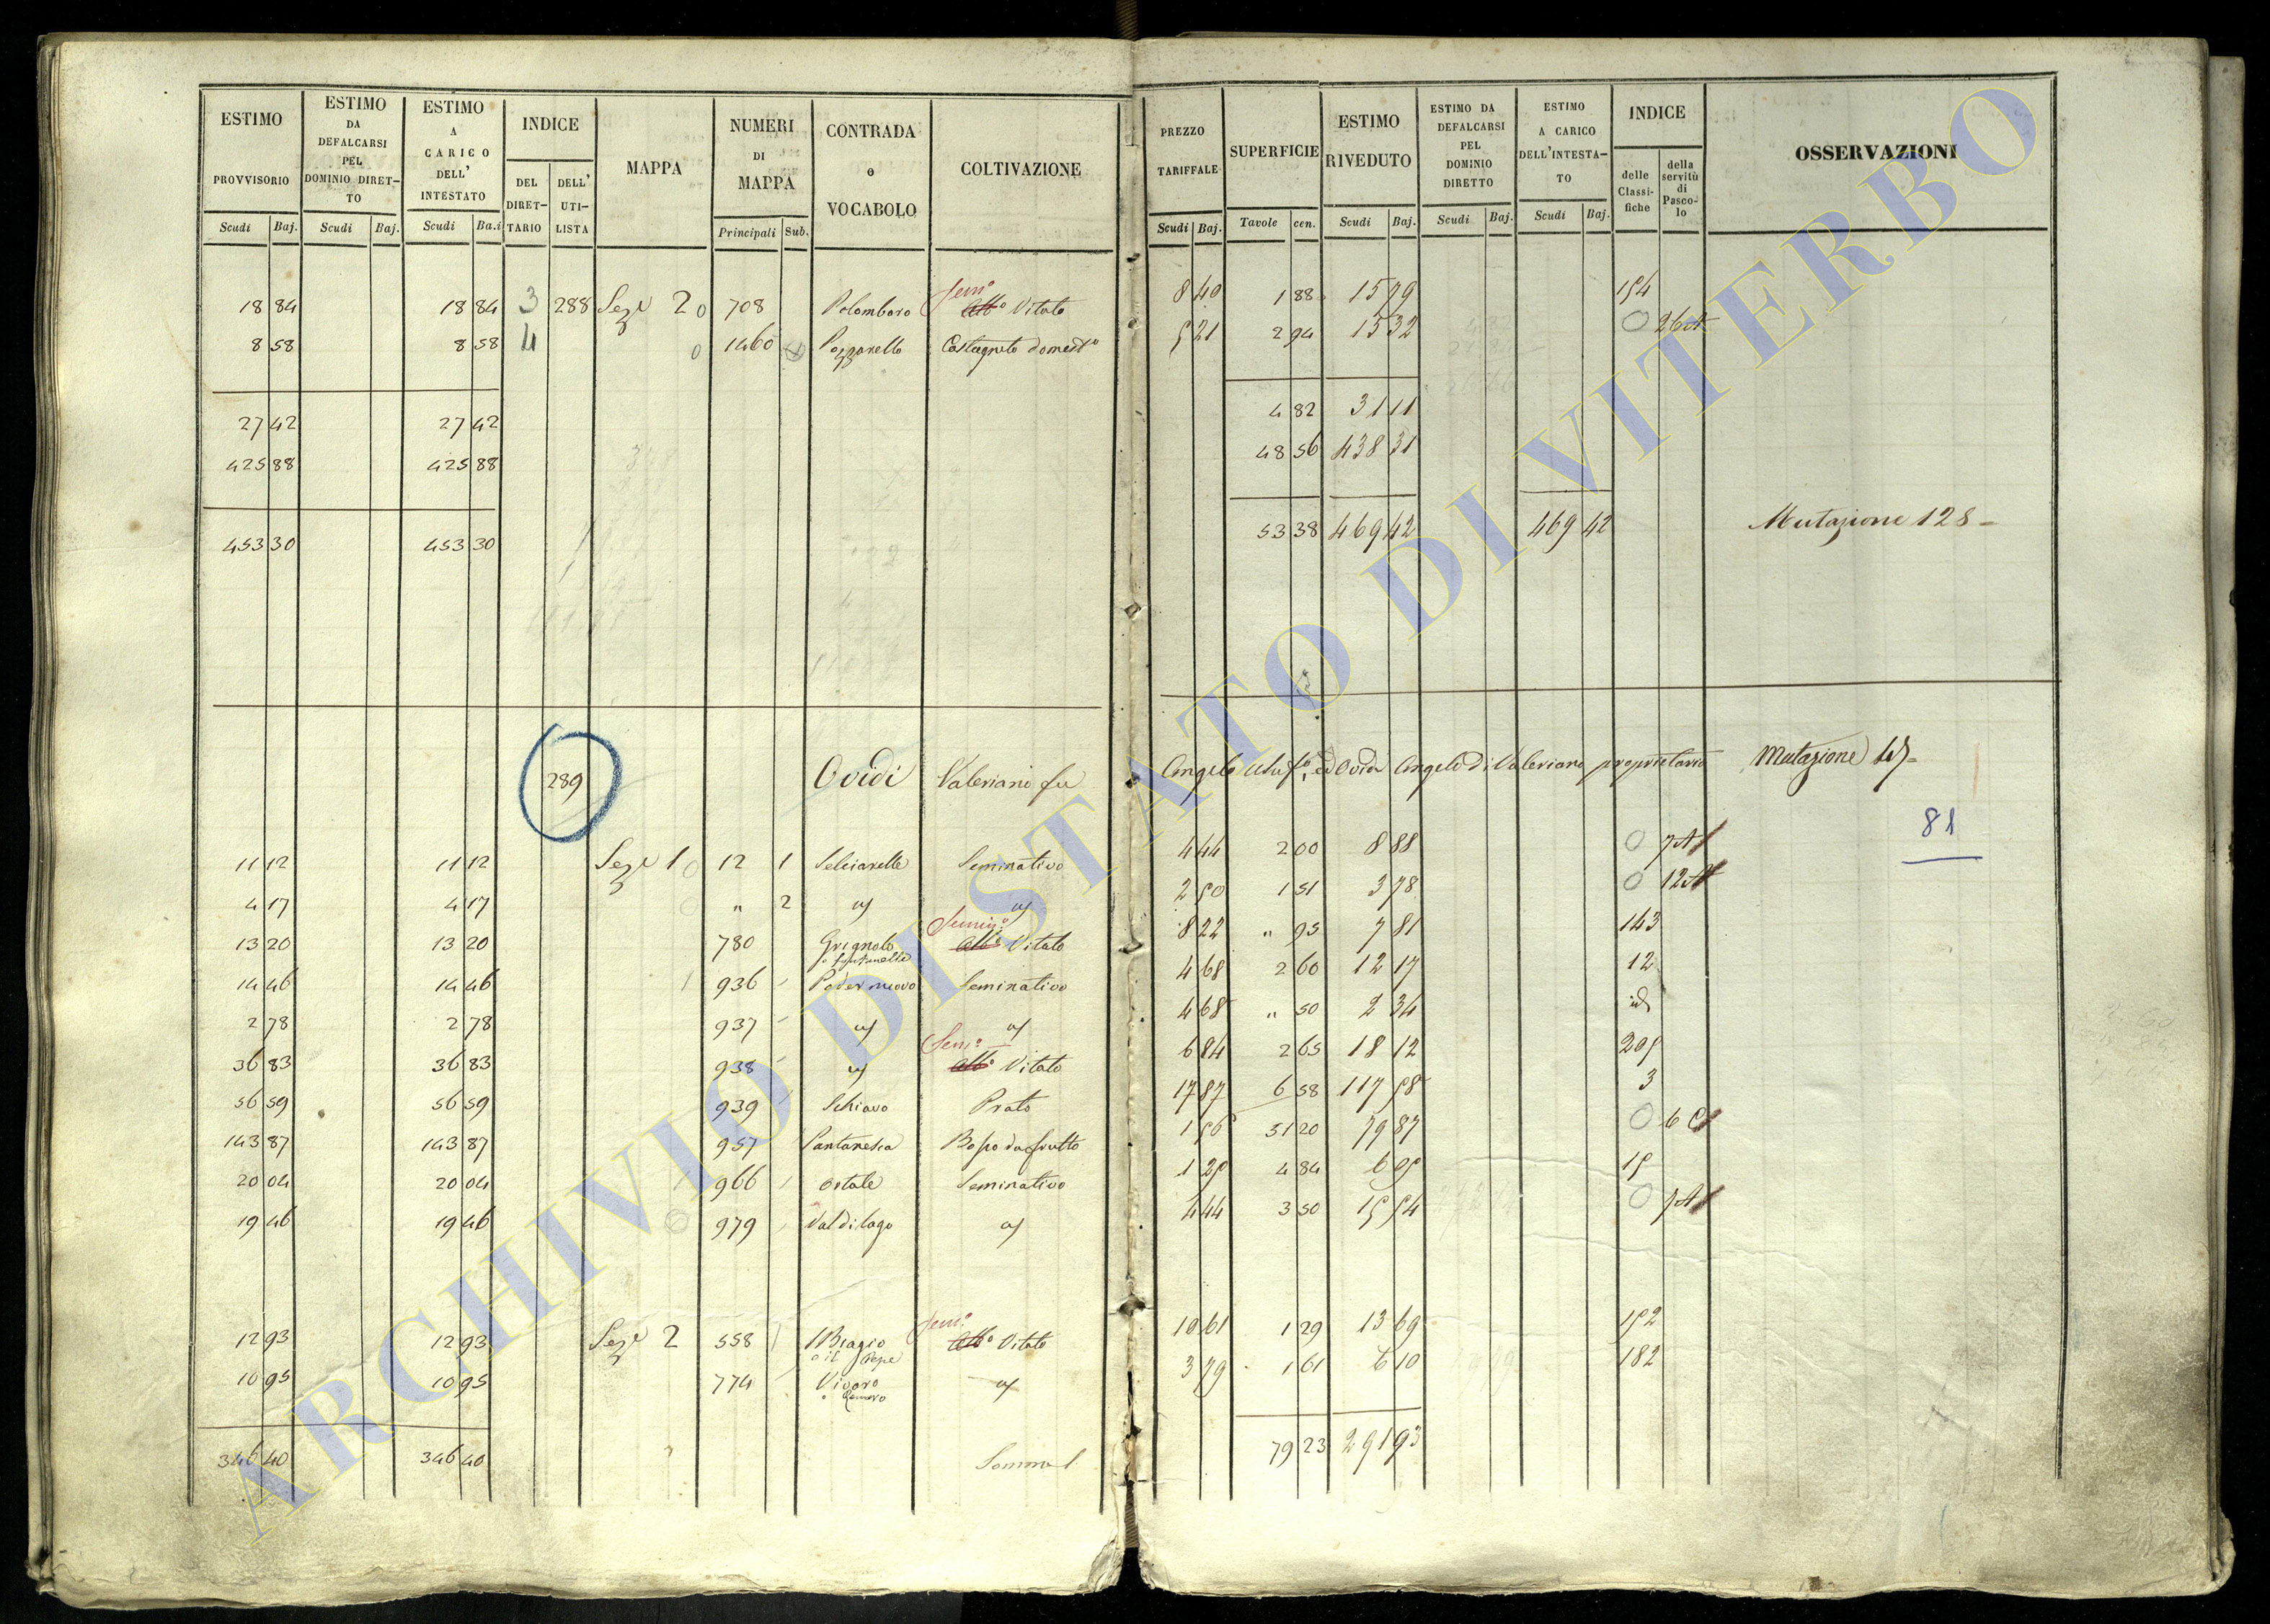 ESTIMO PROVVISORIO Scudi Baj.
ESTIMO DA DEFALCARSI PEL DOMINIO DIRET-TO Scudi Baj.
ESTIMO A CARICO DELL' INTESTATO Scudi Ba.i
INDICE DEL DIRET-TARIO DELL' UTI-LISTA
MAPPA
NUMERI DI MAPPA Principali Sub.
CONTRADA o VOCABOLO
COLTIVAZIONE
PREZZO TARIFFALE Scudi Baj.
SUPERFICIE Tavole cen.
ESTIMO RIVEDUTO Scudi Baj.
ESTIMO DA DEFALCARSI PEL DOMINIO DIRETTO Scudi Baj.
ESTIMO A CARICO DELL'INTESTA-TO Scudi Baj.
INDICE delle Classi-fiche della servitù di Pasco-lo
OSSERVAZIONI
18 84 18 84 3 288 Sez 2 0 708 Palombaro Semo Vitato 8 40 1 88 15 79 154
8 58 8 58 4 0 1460 Pozzarello Castagneto domesto 5 21 2 94 15 32 0 26 A
27 42 27 42 4 82 31 11
425 88 425 88 48 56 438 31
453 30 453 30 53 38 469 42 469 42 Mutazione 128
289 Ovidi Valeriano fu Angelo ed Ovidi Angelo di Valeriano proprietario Mutazione
81
11 12 11 12 Sez 1 0 12 1 Selciarella Seminativo 4 44 2 00 8 88 0 7 A
4 17 4 17 0 " 2 2 50 1 51 3 78 0 12 A
13 20 13 20 780 Grignolo o fontanella Semino Vitato 8 22 " 95 7 81 143
14 46 14 46 936 Poder nuovo Seminativo 4 68 2 60 12 17 12
2 78 2 78 937 4 68 " 50 2 34 id
36 83 36 83 938 Semo Vitato 6 84 2 65 18 12 205
56 59 56 59 939 Schiavo Prato 17 87 6 58 117 58 3
143 87 143 87 957 Pantanesca Bosco da frutto 1 56 51 20 79 87 0 6 C
20 04 20 04 966 ortale Seminativo 1 25 4 84 6 05 15
19 46 19 46 0 979 Valdilago 4 44 3 50 15 54 0 7 A
12 93 12 93 Sez 2 558 S Biagio o il Pepe Semo Vitato 10 61 1 29 13 69 152
10 95 10 95 774 Vivaro 3 79 1 61 6 10 182
346 40 346 40 Somma 79 23 291 93
ARCHIVIO DI STATO DI VITERBO